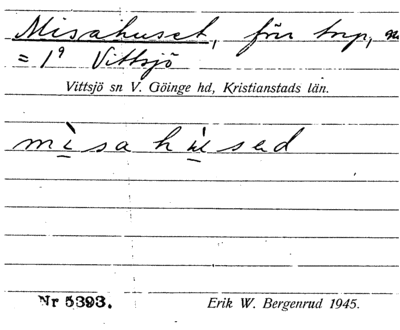 Misahuset, förr torp, n
= 1⁹ Vittsjö
Vittsjö sn V. Göinge hd, Kristianstads län.
mìsahùsed
Nr 5393.
Erik W. Bergenrud 1945.